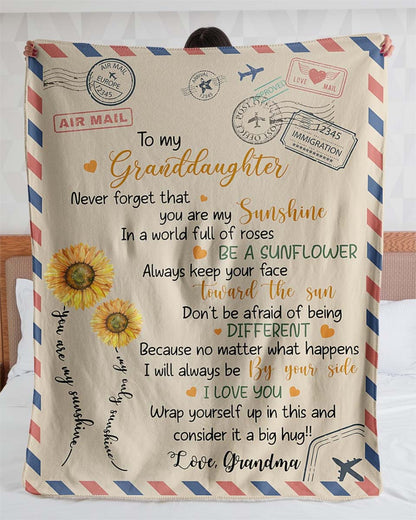 AIR MAIL
EUROPE
12345
AIR MAIL
ARRIVAL
APPROVED
LOVE MAIL
POST OFFICE
POST OFFICE
12345
IMMIGRATION
To my
Granddaughter
Never forget that
you are my Sunshine
In a world full of roses
BE A SUNFLOWER
Always keep your face
toward the sun
Don't be afraid of being
DIFFERENT
Because no matter what happens
I will always be By your side
I LOVE YOU
Wrap yourself up in this and
consider it a big hug!!
Love, Grandma
You are my sunshine
my only sunshine